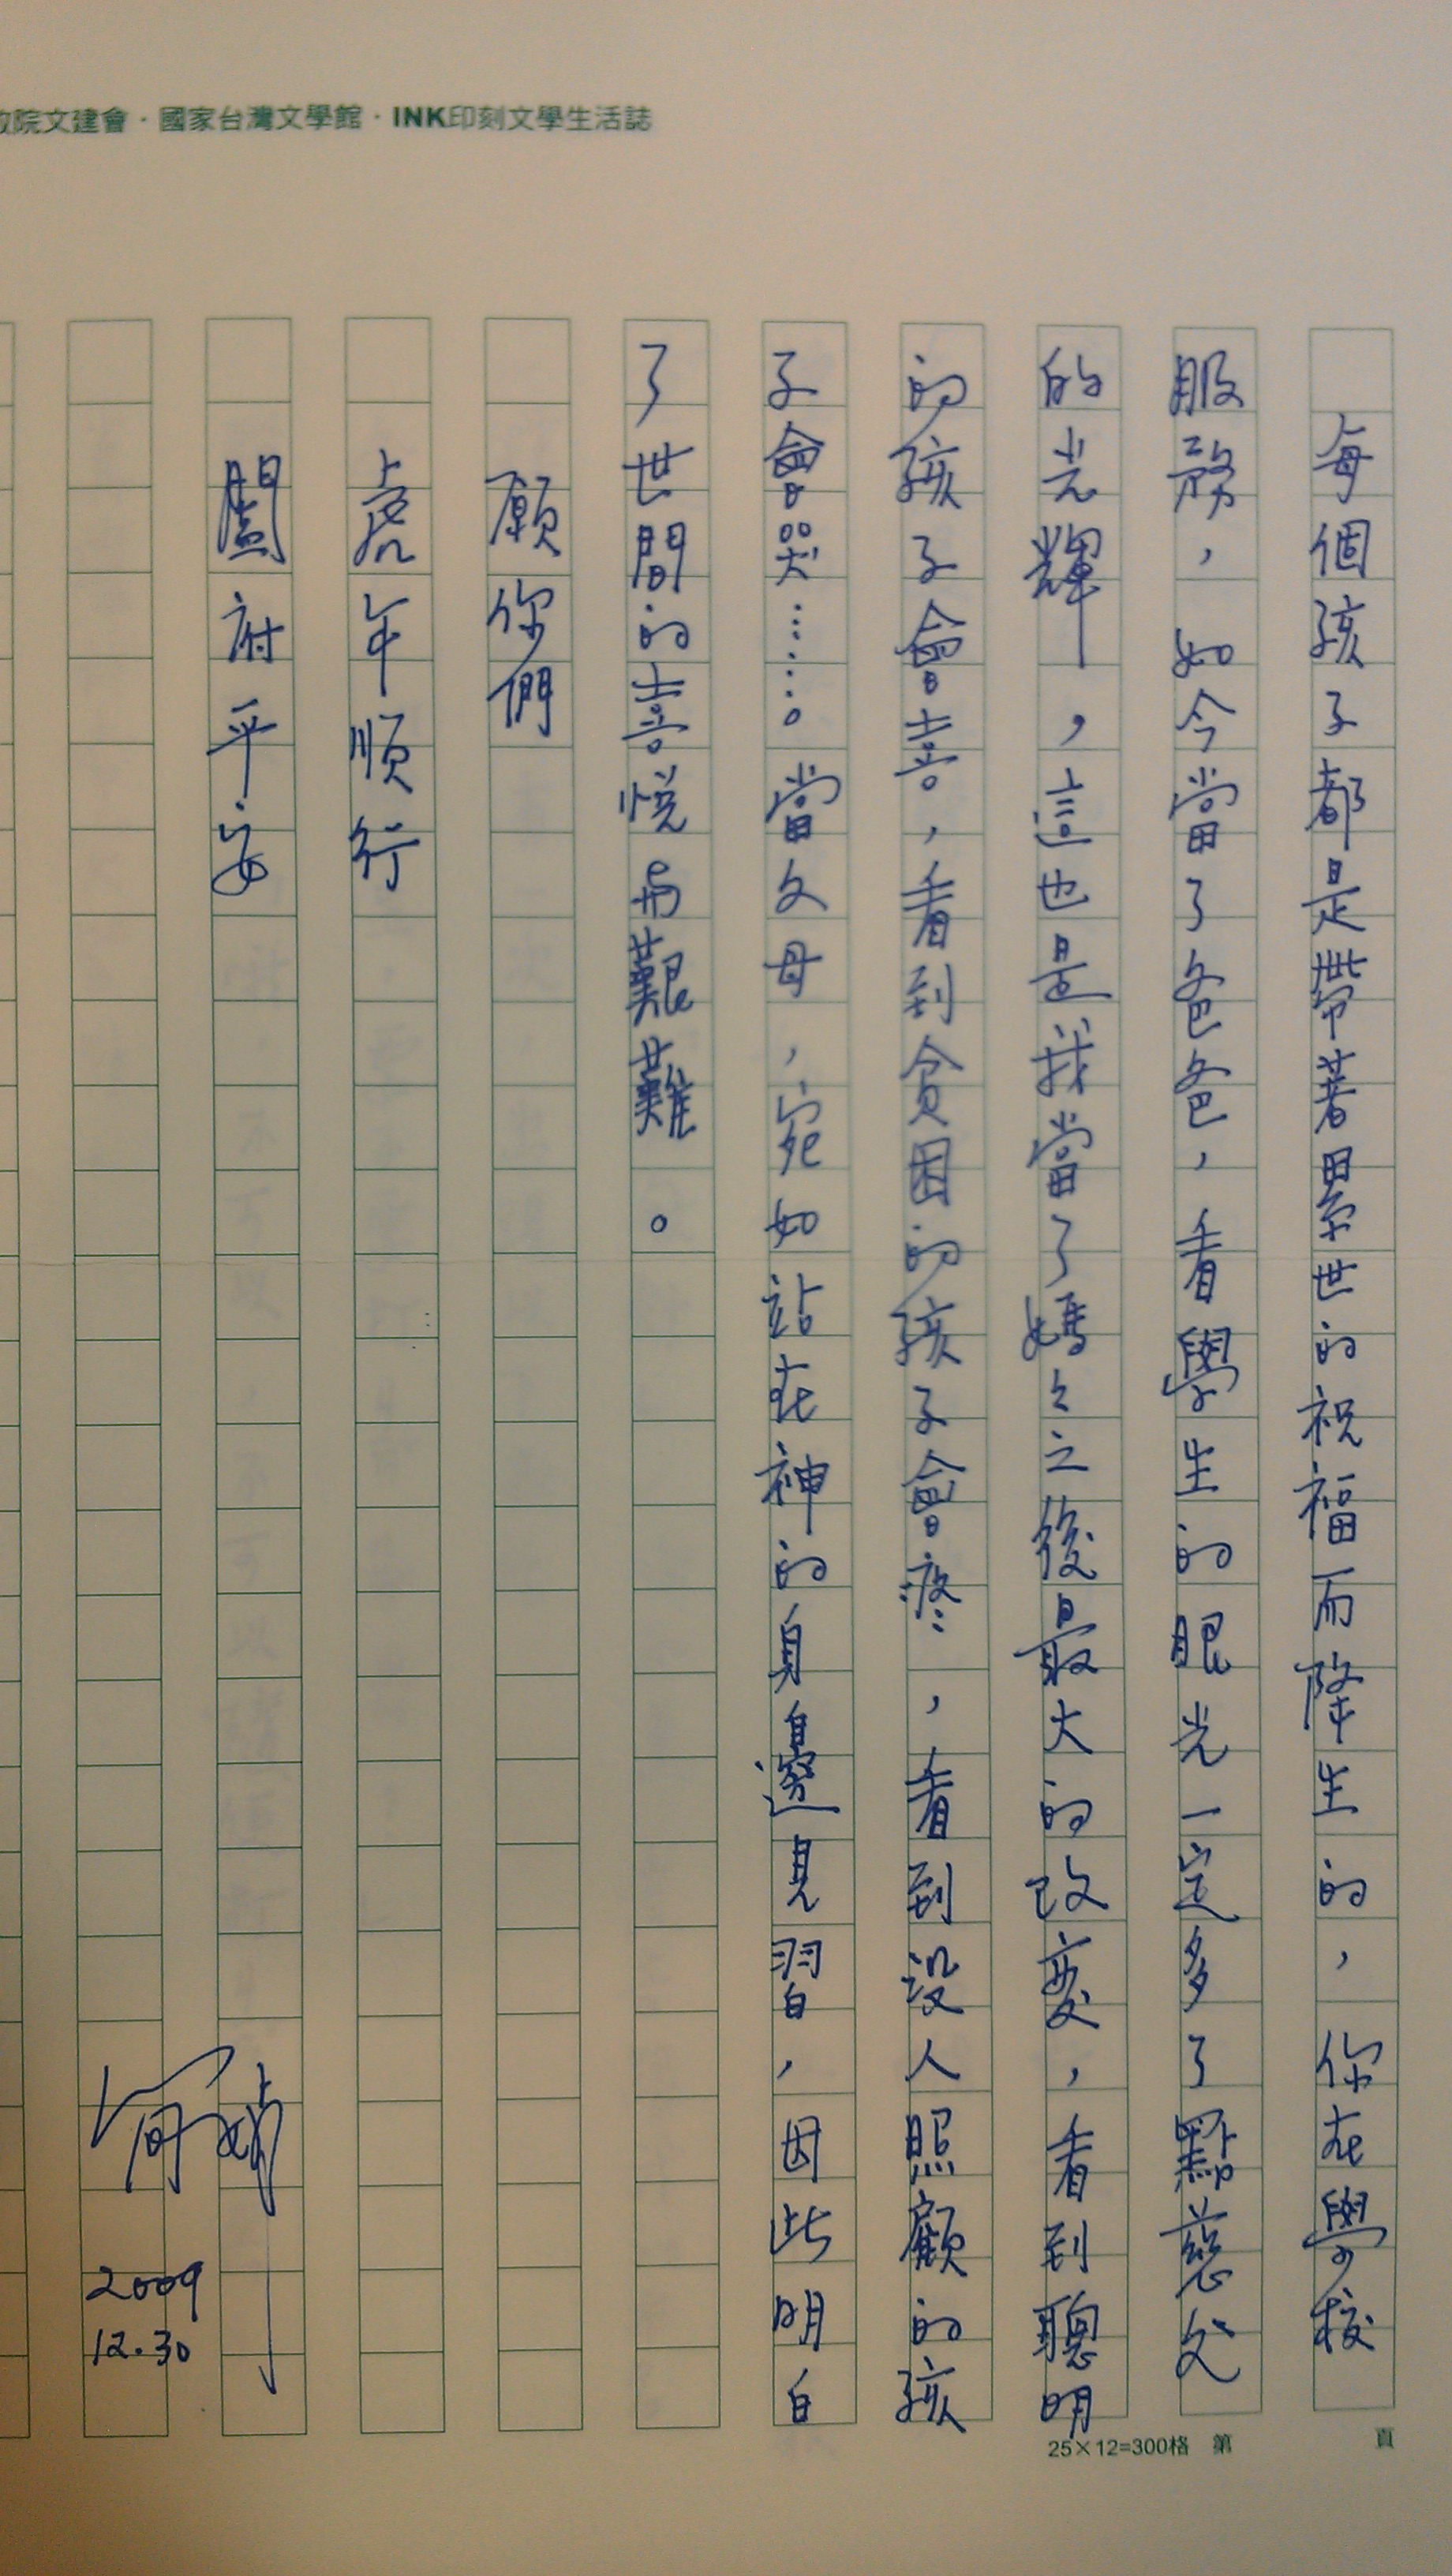 政院文建會·國家台灣文學館·INK印刻文學生活誌
每個孩子都是帶著累世的祝福而降生的,你在學校
服務,如今當了爸爸,看學生的眼光一定多了點慈父
的光輝,這也是我當了媽々之後最大的改變,看到聰明
的孩子會喜,看到貧困的孩子會疼,看到沒人照顧的孩
子會哭……。當父母,宛如站在神的身邊見習,因此明白
了世間的喜悅與艱難。
願你們
虎年順行
闔府平安
2009
12.30
25×12=300格 第 頁